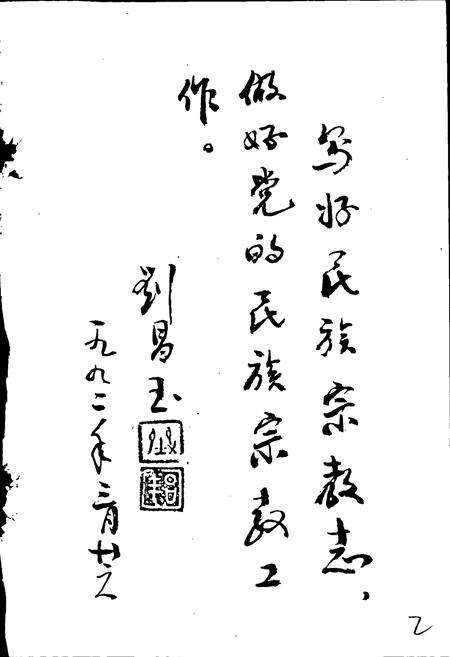 写好民族宗教志，
做好党的民族宗教工
作。
劉昌玉
一九九二年三月廿二
2